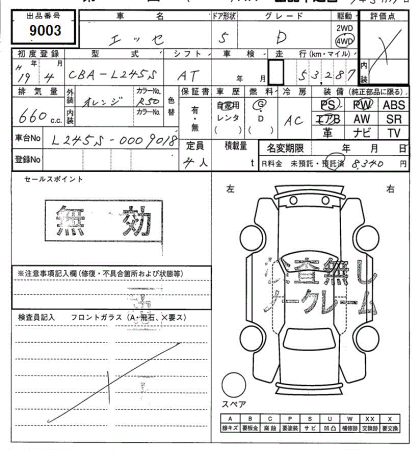 出品番号 車名 ドア形状 グレード 駆動 評価点
9003 エッセ 5 D 2WD 4WD
初度登録 型式 シフト 車検 走行(km・マイル) 内装
H 19年 4月 CBA-L245S AT 年 月 53,287
排気量 外装 カラーNo. 色替 保証書 車歴 燃料 冷房 装備(純正部品に限る)
660 c.c. オレンジ R50 有・無 自家用 G AC PS PW ABS
内装 カラーNo. レンタ D エアB AW SR
( ) ( ) 革 ナビ TV
車台No L245S-0009018 定員 積載量 名変期限 年 月 日
登録No 4人 t R料金 未預託・預託済 8,340 円
セールスポイント
無効
※注意事項記入欄(修復・不具合箇所および状態等)
検査員記入 フロントガラス(A・飛石、×要ス)
左 右
査無し
ークレーム
スペア
A B C P S U W X XX
線キズ 要板金 腐蝕 要塗装 サビ 凹凸 補修跡 交換跡 要交換